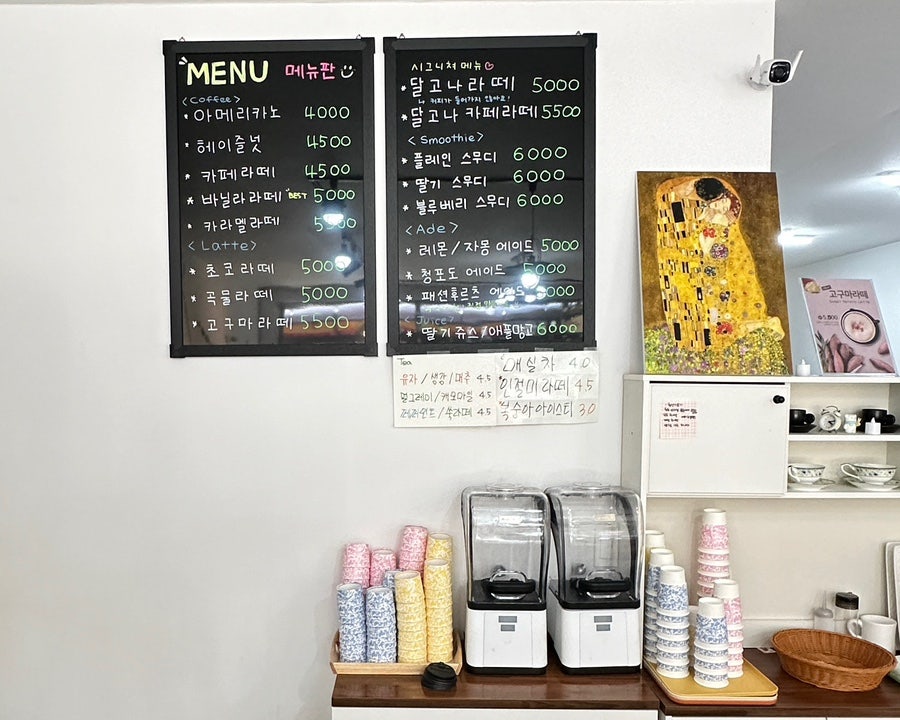 MENU 메뉴판
<Coffee>
* 아메리카노 4000
* 헤이즐넛 4500
* 카페라떼 4500
* 바닐라라떼 BEST 5000
* 카라멜라떼 5500
<Latte>
* 초코라떼 5000
* 곡물라떼 5000
* 고구마라떼 5500
시그니쳐 메뉴
* 달고나라떼 5000
커피가 들어가지 않아요!
* 달고나 카페라떼 5500
<Smoothie>
* 플레인 스무디 6000
* 딸기 스무디 6000
* 블루베리 스무디 6000
<Ade>
* 레몬/자몽 에이드 5000
* 청포도 에이드 5000
* 패션후르츠 에이드 5000
<Juice>
* 딸기쥬스/애플망고 6000
Tea
유자/생강/대추 4.5
얼그레이/캐모마일 4.5
페퍼민트/쑥라떼 4.5
매실차 4.0
인절미라떼 4.5
복숭아아이스티 3.0
고구마라떼